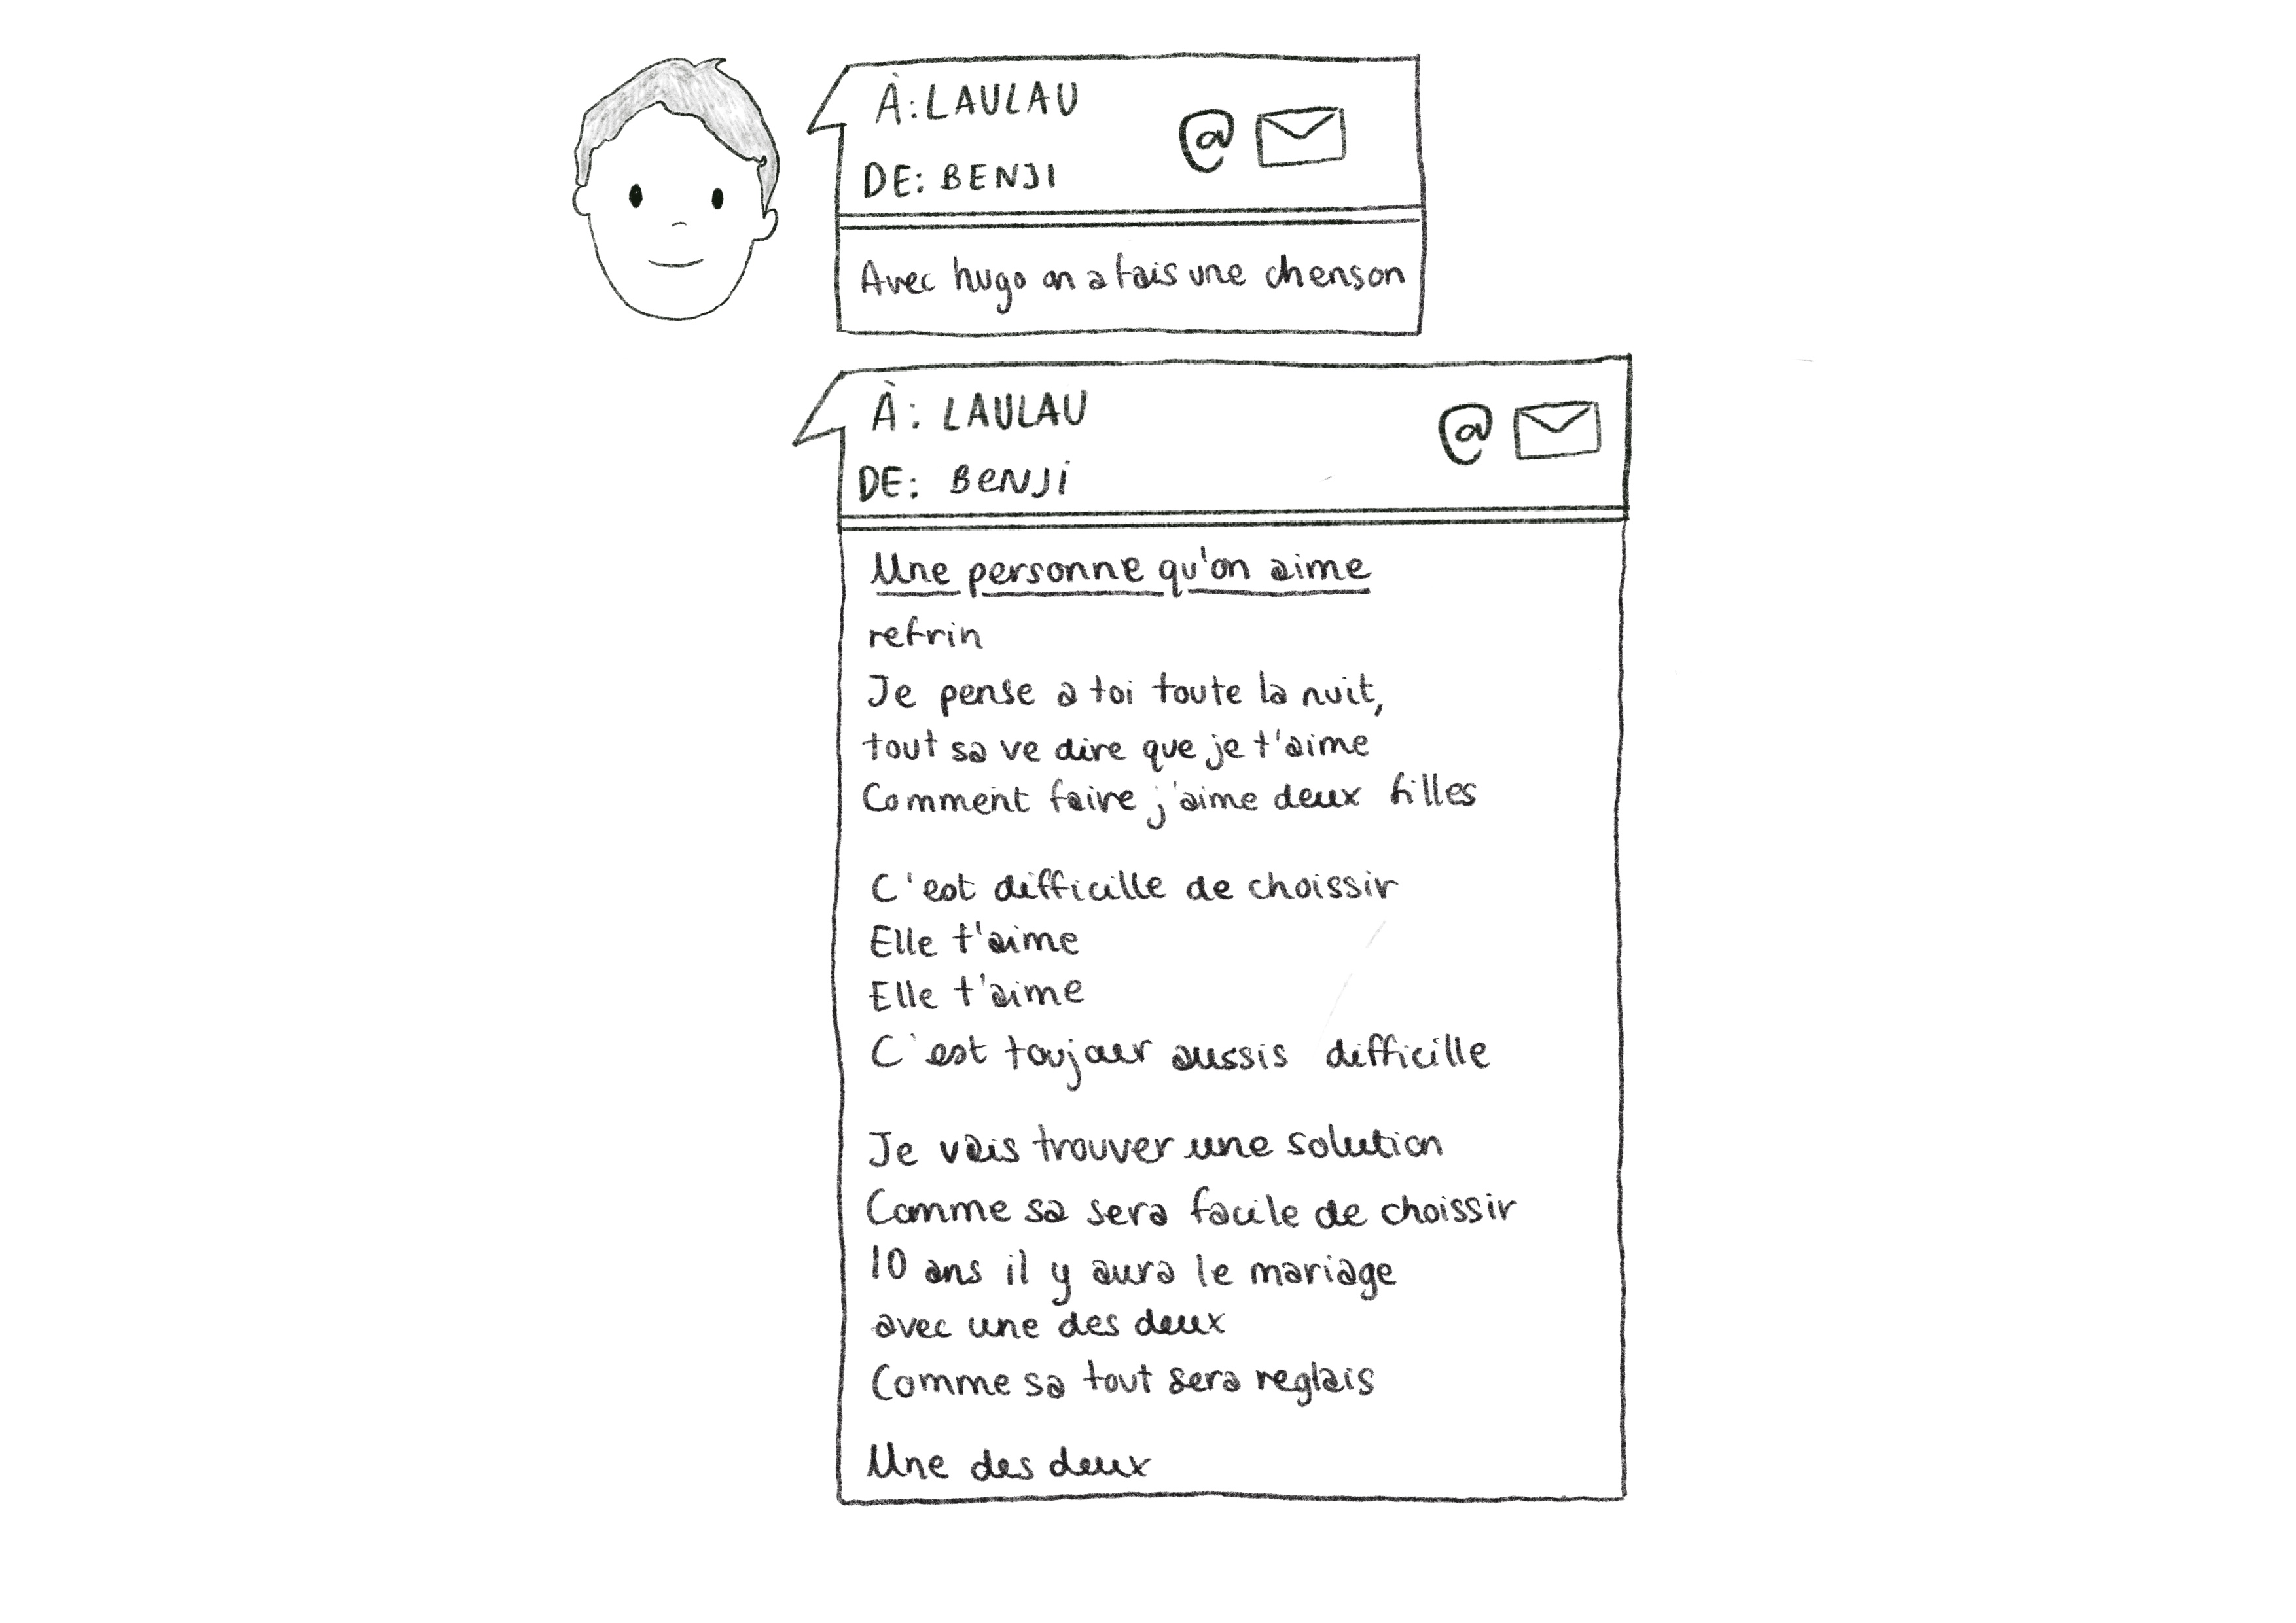 À: LAULAU
@
DE: BENJI
Avec hugo on a fais une chenson
À: LAULAU
@
DE: BENJI
Une personne qu'on aime
refrin
Je pense a toi toute la nuit,
tout sa ve dire que je t'aime
Comment faire j'aime deux filles
C'est difficille de choissir
Elle t'aime
Elle t'aime
C'est toujour aussis difficille
Je vais trouver une solution
Comme sa sera facile de choissir
10 ans il y aura le mariage
avec une des deux
Comme sa tout sera reglais
Une des deux